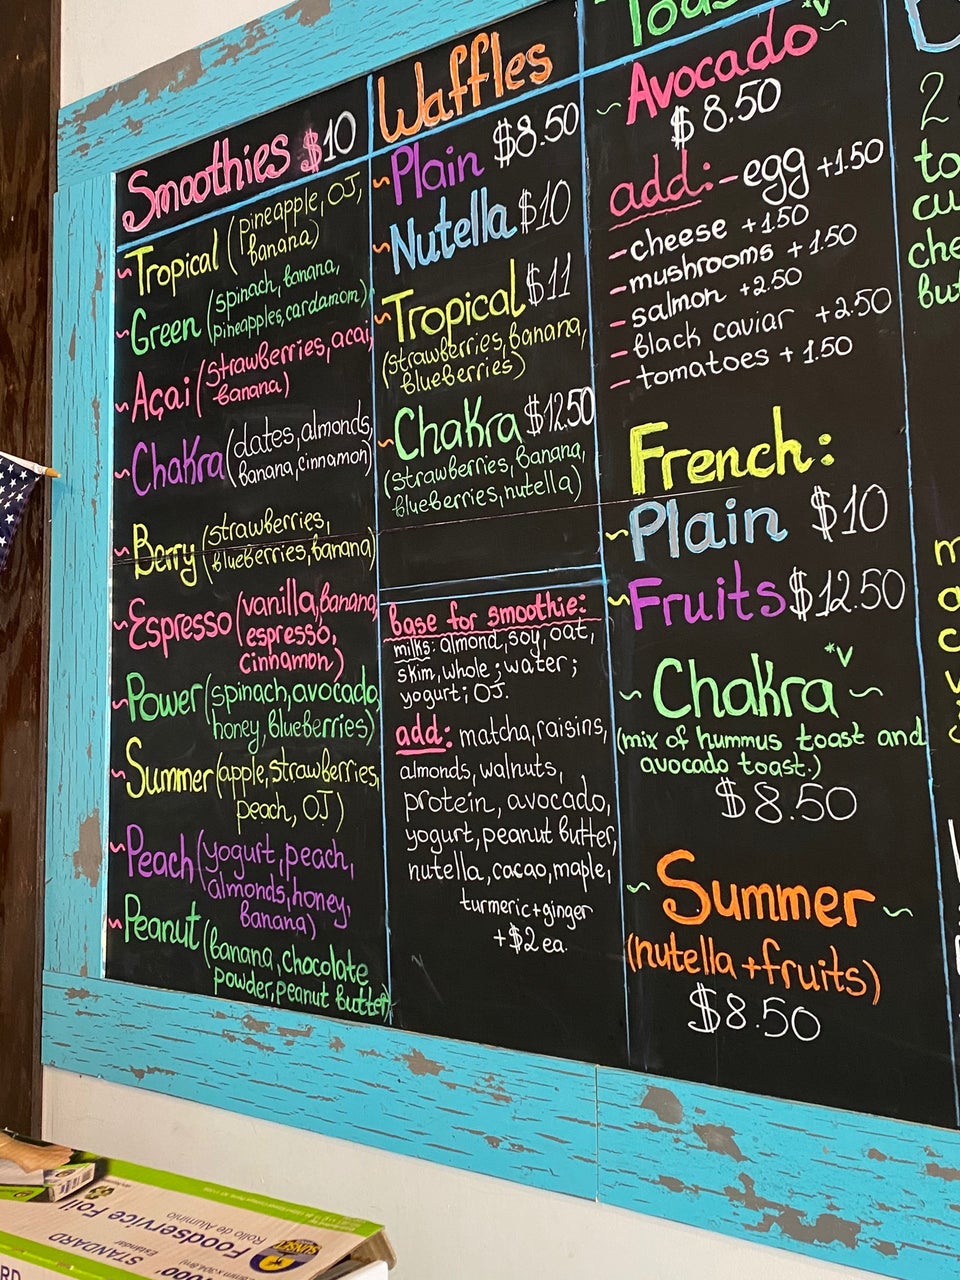 Smoothies $10
~Tropical (pineapple, OJ,
banana)
~Green (spinach, banana,
pineapples, cardamom)
~Açai (strawberries, acai,
banana)
~Chakra (dates, almonds,
banana, cinnamon)
~Berry (strawberries,
blueberries, banana)
~Espresso (vanilla, banana,
espresso,
cinnamon)
~Power (spinach, avocado,
honey, blueberries)
~Summer (apple, strawberries,
peach, OJ)
~Peach (yogurt, peach,
almonds, honey,
banana)
~Peanut (banana, chocolate
powder, peanut butter)
Waffles
~Plain $8.50
~Nutella $10
~Tropical $11
(strawberries, banana,
blueberries)
~Chakra $12.50
(strawberries, banana,
blueberries, nutella)
base for smoothie:
milks: almond, soy, oat,
skim, whole; water;
yogurt; OJ.
add: matcha, raisins,
almonds, walnuts,
protein, avocado,
yogurt, peanut butter,
nutella, cacao, maple,
turmeric+ginger
+$2 ea.
*v
~Avocado~
$8.50
add: - egg +1.50
- cheese +1.50
- mushrooms +1.50
- salmon +2.50
- black caviar +2.50
- tomatoes +1.50
French:
~Plain $10
~Fruits $12.50
*v
~Chakra~
(mix of hummus toast and
avocado toast.)
$8.50
~Summer~
(nutella+fruits)
$8.50
2
Foodservice Foil
Rollo de Aluminio
STANDARD
Estándar